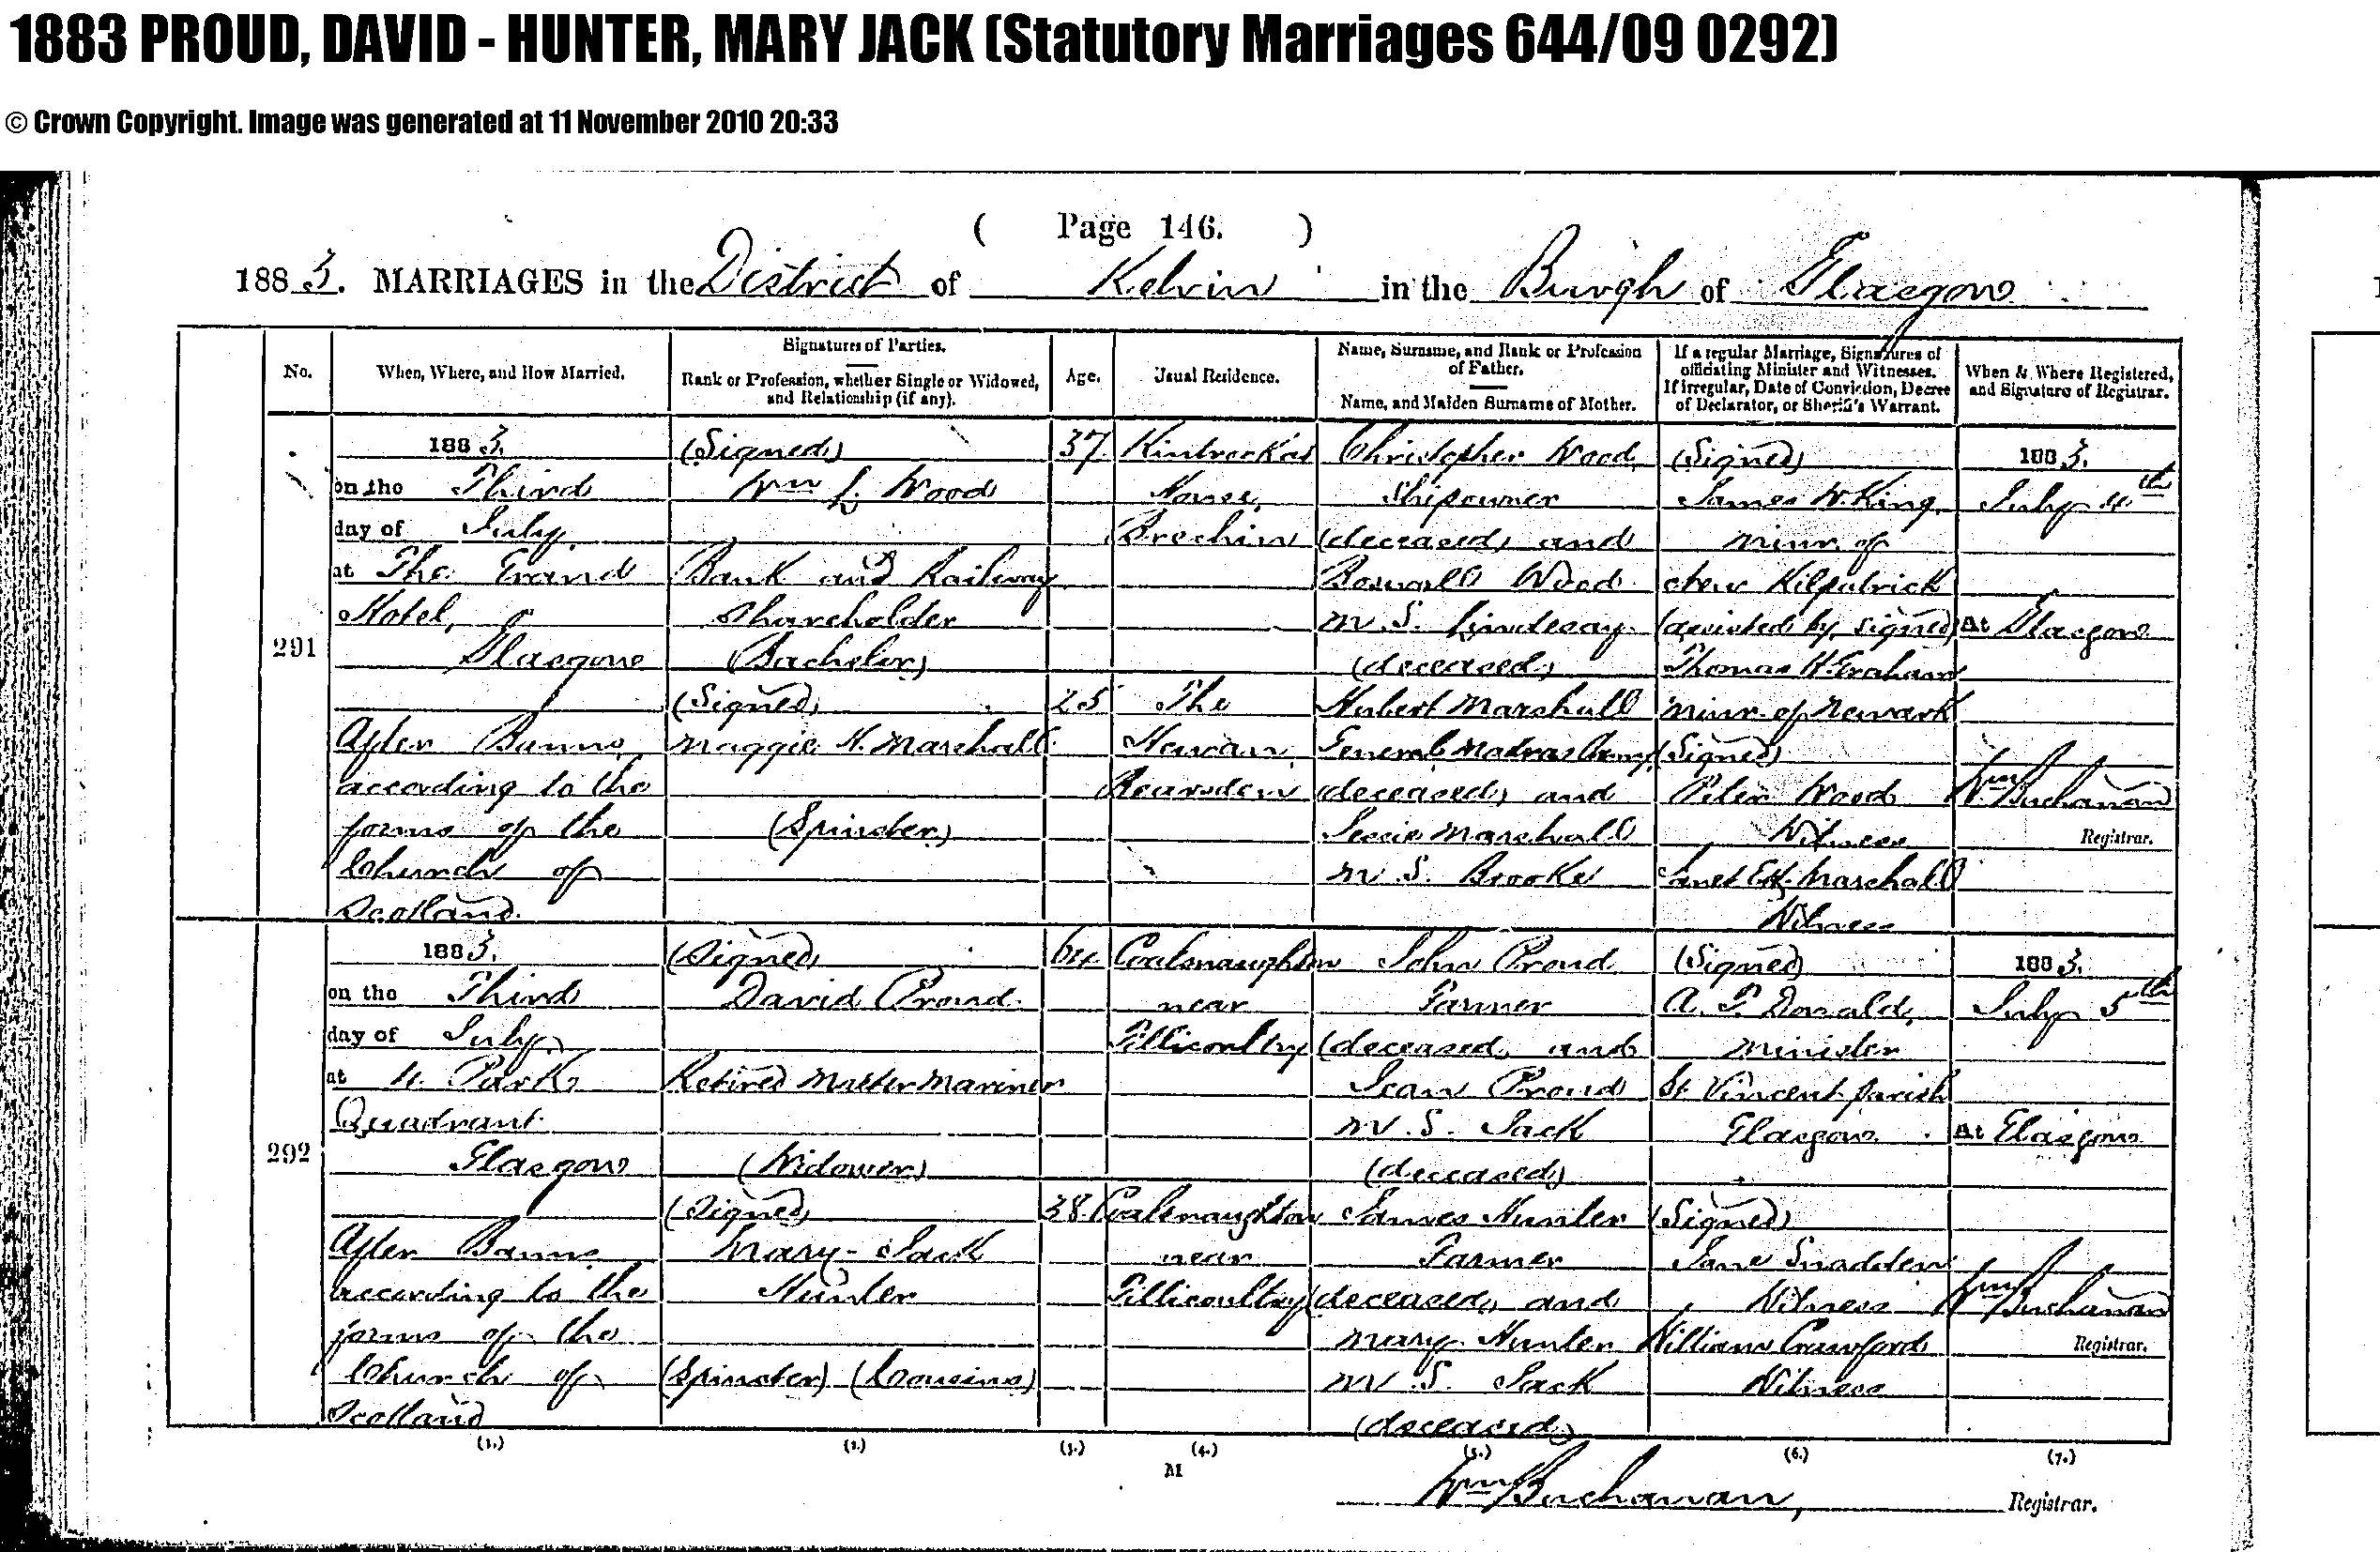 1883 PROUD, DAVID - HUNTER, MARY JACK (Statutory Marriages 644/09 0292)
© Crown Copyright. Image was generated at 11 November 2010 20:33
( Page 146. )
1883. MARRIAGES in the District of Kelvin in the Burgh of Glasgow
No.
When, Where, and How Married.
Signatures of Parties.
Rank or Profession, whether Single or Widowed,
and Relationship (if any).
Age.
Usual Residence.
Name, Surname, and Rank or Profession
of Father.
Name, and Maiden Surname of Mother.
If a regular Marriage, Signatures of
officiating Minister and Witnesses.
If irregular, Date of Conviction, Decree
of Declarator, or Sheriff's Warrant.
When & Where Registered,
and Signature of Registrar.
291
1883.
on the Third
day of July
at The Grand
Hotel,
Glasgow
After Banns
according to the
forms of the
Church of
Scotland.
(Signed)
Wm L. Wood
Bank and Railway
Shareholder
(Bachelor)
(Signed)
Maggie H. Marshall
(Spinster)
37
25
House,
Brechin
The
Bearsden
Christopher Wood,
Shipowner
(deceased) and
Wood
M.S. Lindesay
(deceased)
Hubert Marshall
General Madras Army
(deceased) and
Jessie Marshall
M.S. Brooke
(Signed)
James W. King,
Minr. of
New Kilpatrick
(assisted by signed)
Thomas H. Graham
Minr. of Newark
(Signed)
Peter Wood
Witness
Janet E.H. Marshall
Witness
1883.
July 4th
At Glasgow
Wm Buchanan
Registrar.
292
1883.
on the Third
day of July
at 4. Park
Quadrant
Glasgow
After Banns
according to the
forms of the
Church of
Scotland
(Signed)
David Proud.
Retired Master Mariner
(Widower)
(Signed)
Mary Jack
Hunter
(Spinster) (Cousins)
64
38
Coalsnaughton
near
Tillicoultry
Coalsnaughton
near
Tillicoultry
John Proud
Farmer
(deceased) and
Jean Proud
M.S. Jack
(deceased)
James Hunter
Farmer
(deceased) and
Mary Hunter
M.S. Jack
(deceased)
(Signed)
A. P. Donald,
Minister
St. Vincent Parish
Glasgow
(Signed)
Jane Snadden
Witness
William Crawford
Witness
1883.
July 5th
At Glasgow
Wm Buchanan
Registrar.
(1.) (2.) (3.) (4.) (5.) (6.) (7.)
M
Wm Buchanan, Registrar.